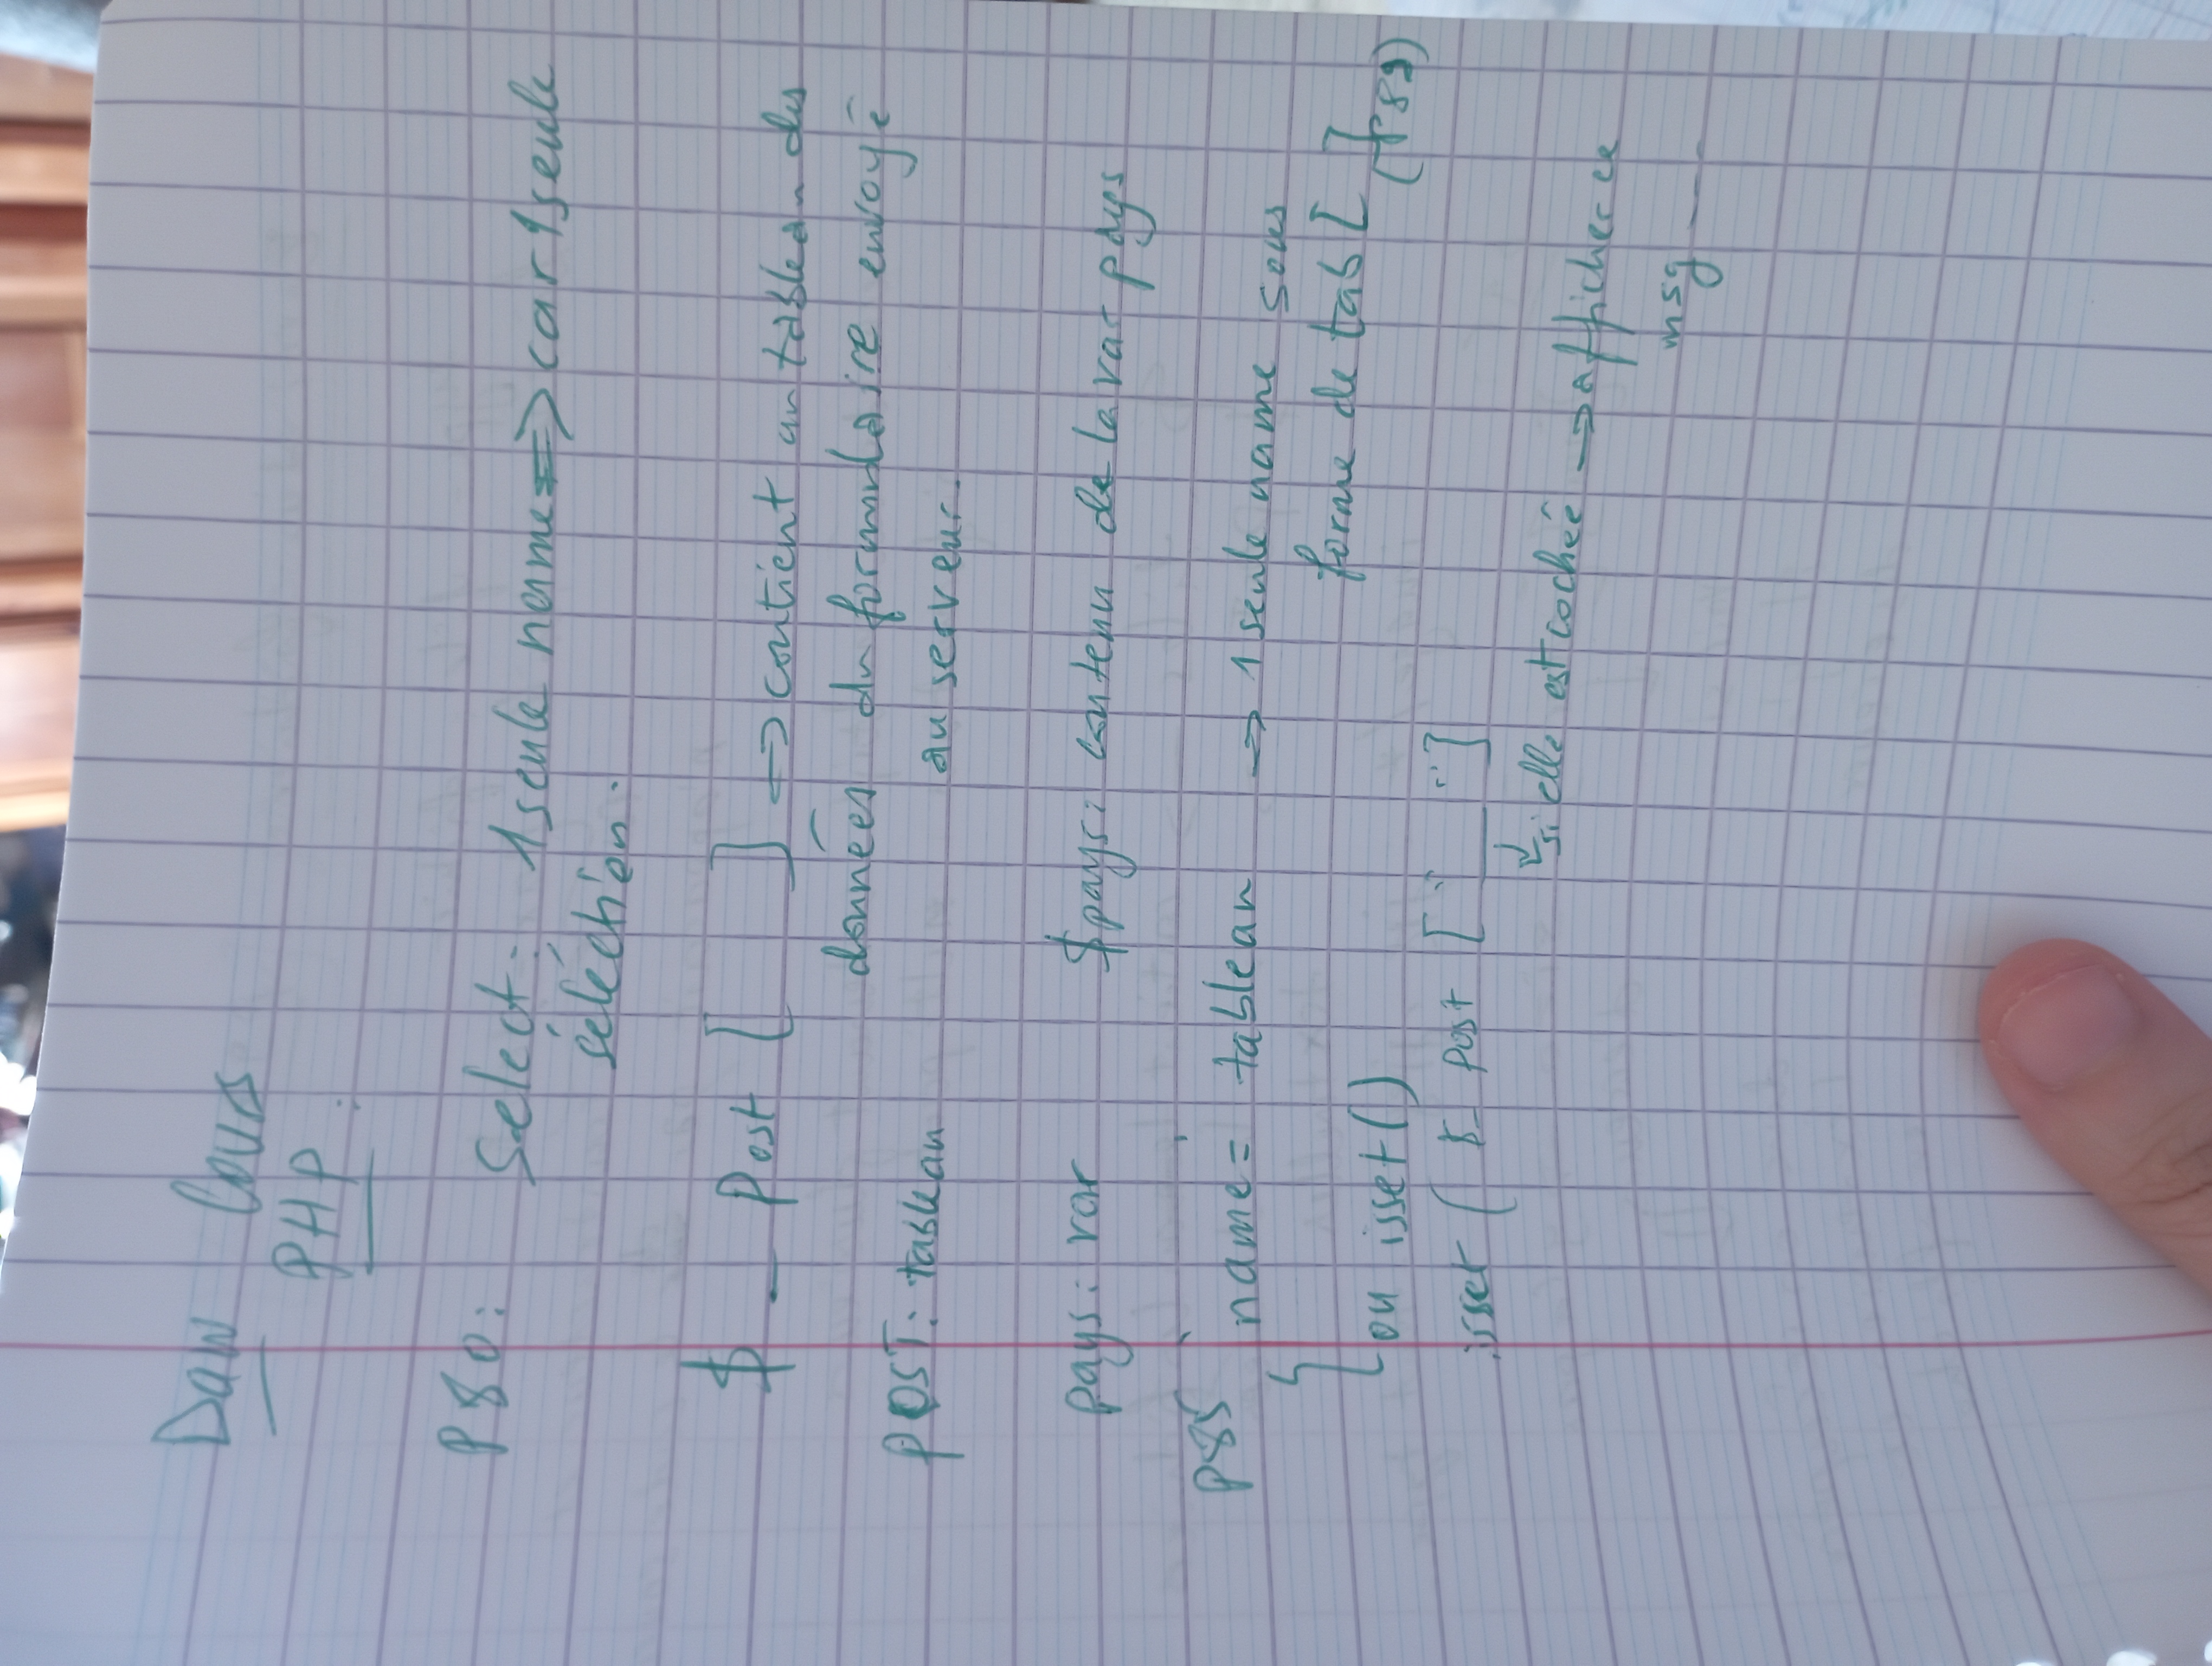 Daw Cours
PHP:
P80: Select: 1 seule name => car 1 seule
séléction.
$ _ Post [ ] -> contient un tableau des
données du formulaire envoyé
POST: tableau au serveur.
pays: var $pays: contenu de la var pays
P85 name = tableau -> 1 seule name sous
forme de tab [ ]
ou isset() (P89)
isset ( $_ post [" __ "]
si elle est cochée -> afficher ce
msg ___